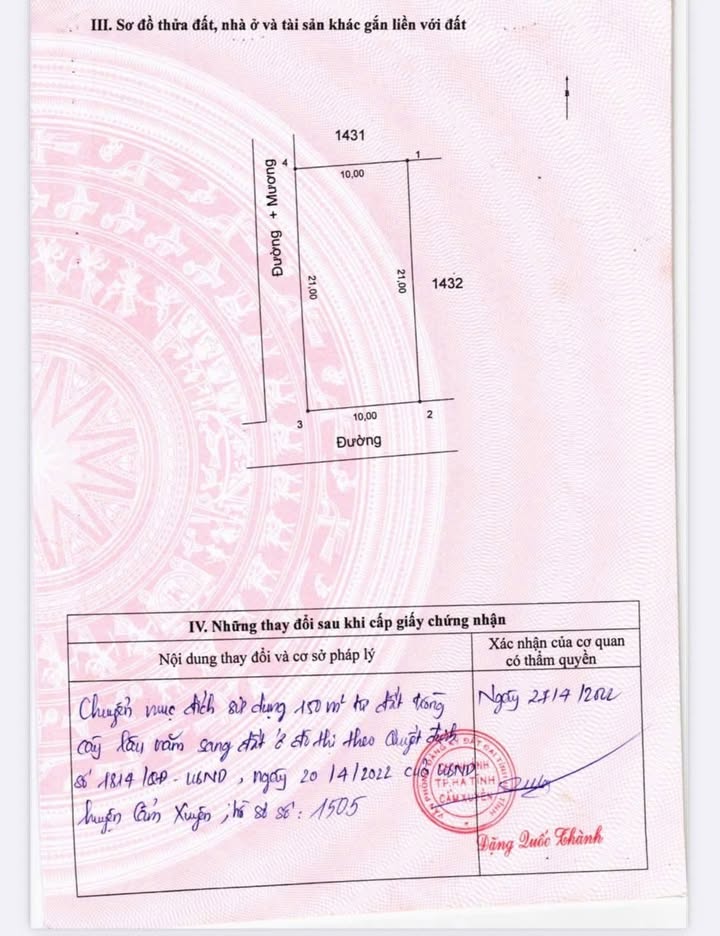 III. Sơ đồ thửa đất, nhà ở và tài sản khác gắn liền với đất
B
1431
4
1
10,00
Đường + Mương
21,00
21,00
1432
10,00
3
2
Đường
IV. Những thay đổi sau khi cấp giấy chứng nhận
Nội dung thay đổi và cơ sở pháp lý
Xác nhận của cơ quan
có thẩm quyền
Chuyển mục đích sử dụng 150 m² từ đất trồng
cây lâu năm sang đất ở đô thị theo Quyết định
số 1814/QĐ-UBND, ngày 20/4/2022 của UBND
huyện Cẩm Xuyên; hồ sơ số: 1505
Ngày 27/4/2022
VĂN PHÒNG ĐĂNG KÝ ĐẤT ĐAI TỈNH
CHI NHÁNH
TP.HÀ TĨNH
CẨM XUYÊN
Đặng Quốc Thành